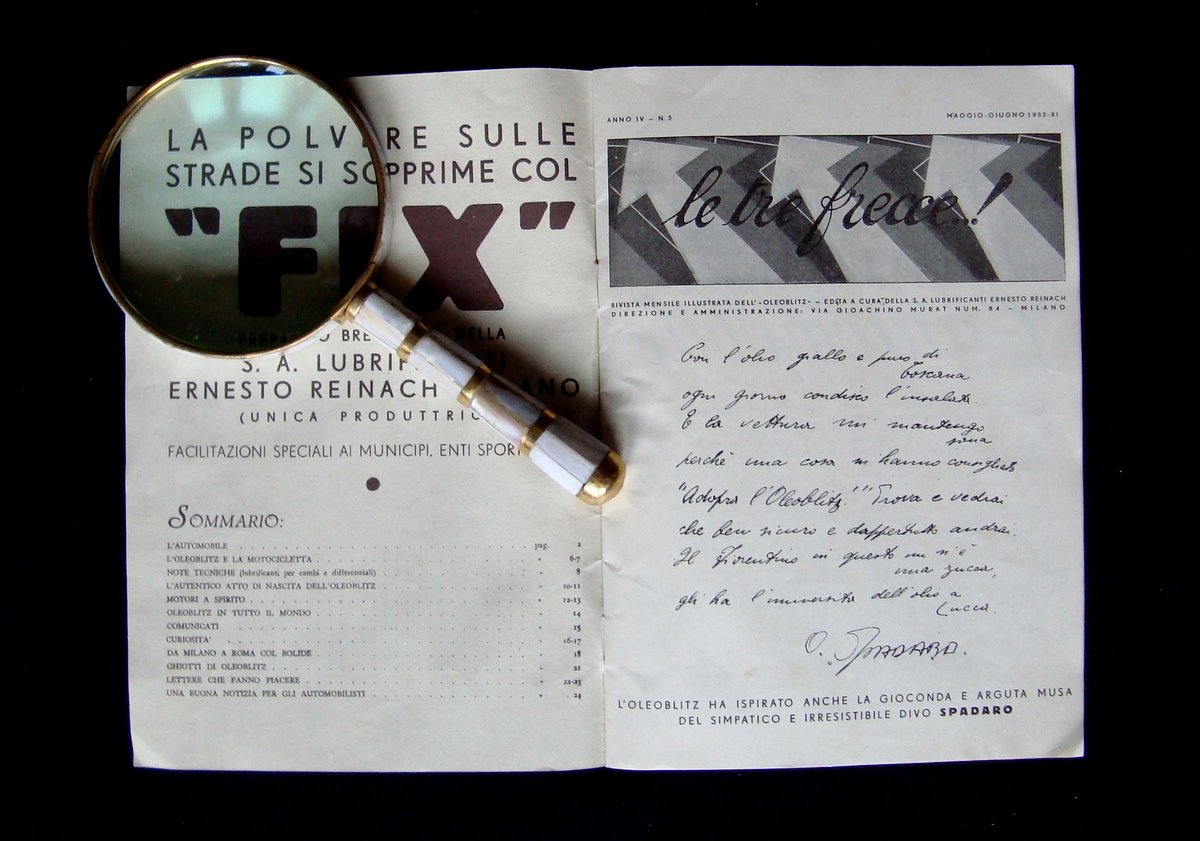 LA POLVERE SULLE
STRADE SI SOPPRIME COL
"FIX"
DELLA
S. A. LUBRIF TI
ERNESTO REINACH ANO
(UNICA PRODUTTRIC
FACILITAZIONI SPECIALI AI MUNICIPI, ENTI SPORT
SOMMARIO:
L'AUTOMOBILE pag. 2
L'OLEOBLITZ E LA MOTOCICLETTA » 6-7
NOTE TECNICHE (lubrificanti per cambi e differenziali) » 8
L'AUTENTICO ATTO DI NASCITA DELL'OLEOBLITZ » 10-11
MOTORI A SPIRITO » 12-13
OLEOBLITZ IN TUTTO IL MONDO » 14
COMUNICATI » 15
CURIOSITA' » 16-17
DA MILANO A ROMA COL BOLIDE » 18
GHIOTTI DI OLEOBLITZ » 21
LETTERE CHE FANNO PIACERE » 22-23
UNA BUONA NOTIZIA PER GLI AUTOMOBILISTI » 24
ANNO IV - N. 3 MAGGIO-GIUGNO 1933-XI
le tre frecce..!
RIVISTA MENSILE ILLUSTRATA DELL'«OLEOBLITZ» - EDITA A CURA DELLA S. A. LUBRIFICANTI ERNESTO REINACH
DIREZIONE E AMMINISTRAZIONE: VIA GIOACHINO MURAT NUM. 84 - MILANO
Con l'olio giallo e puro di
Toscana
ogni giorno condisco l'insalata.
E la vettura mi mantengo
sana
perchè una cosa m'hanno consigliato
"Adopra l'Oleoblitz!" Prova e vedrai
che ben sicuro e dappertutto andrai.
Il Fiorentino in questo un n'è
una zucca,
gli ha l'università dell'olio a
Lucca.
O. SPADARO.
L'OLEOBLITZ HA ISPIRATO ANCHE LA GIOCONDA E ARGUTA MUSA
DEL SIMPATICO E IRRESISTIBILE DIVO SPADARO